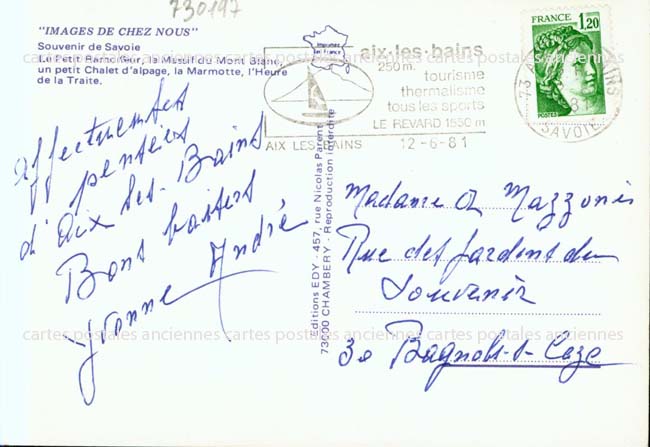 730197
"IMAGES DE CHEZ NOUS"
Souvenir de Savoie
Le Petit Ramoneur, le Massif du Mont Blanc,
un petit Chalet d'alpage, la Marmotte, l'Heure
de la Traite.
Imprimée en France
aix-les-bains
250 m.
tourisme
thermalisme
tous les sports
LE REVARD 1550 m
AIX LES BAINS 12-6-81
FRANCE
1,20
POSTES
73 AIX
SAVOIE
cartes postales anciennes cartes postales anciennes cartes postales anciennes
Affectueuses
pensées
d'Aix les-Bains
Bons baisers
Yvonne André
Editions EDY - 457, rue Nicolas Parent
73000 CHAMBERY - Reproduction interdite
Madame A Mazzonis
Rue des Jardins du
Souvenir
30 Bagnols-s-Ceze
cartes postales anciennes cartes postales anciennes cartes postales anciennes